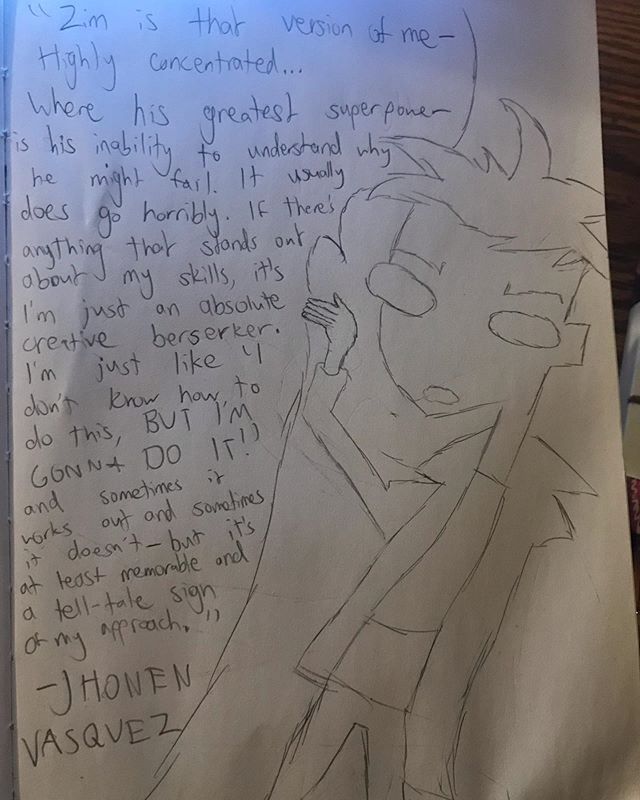 "Zim is that version of me-
Highly concentrated...
Where his greatest superpower
is his inability to understand why
he might fail. It usually
does go horribly. If there's
anything that stands out
about my skills, it's
I'm just an absolute
creative berserker.
I'm just like "I
don't know how to
do this, BUT I'M
GONNA DO IT!"
and sometimes it
works out and sometimes
it doesn't-but it's
at least memorable and
a tell-tale sign
of my approach."
-JHONEN
VASQVEZ